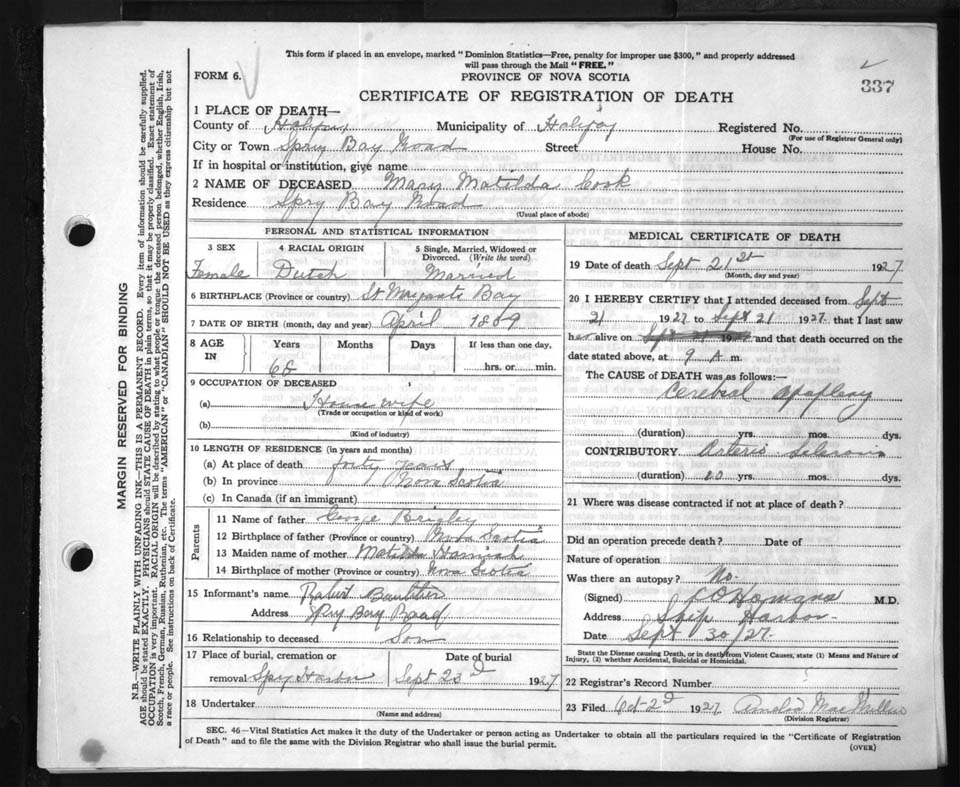 This form if placed in an envelope, marked "Dominion Statistics—Free, penalty for improper use $300," and properly addressed
will pass through the Mail "FREE."
FORM 6.
PROVINCE OF NOVA SCOTIA
337
CERTIFICATE OF REGISTRATION OF DEATH
1 PLACE OF DEATH—
County of Halifax Municipality of Halifax Registered No.
(For use of Registrar General only)
City or Town Spry Bay Road Street House No.
If in hospital or institution, give name
2 NAME OF DECEASED Mary Matilda Cook
Residence Spry Bay Road
(Usual place of abode)
PERSONAL AND STATISTICAL INFORMATION
3 SEX 4 RACIAL ORIGIN 5 Single, Married, Widowed or
Divorced. (Write the word)
Female Dutch Married
6 BIRTHPLACE (Province or country) St Margarets Bay
7 DATE OF BIRTH (month, day and year) April 1859
8 AGE IN Years Months Days If less than one day,
68 hrs. or min.
9 OCCUPATION OF DECEASED
(a) House wife
(Trade or occupation or kind of work)
(b)
(Kind of industry)
10 LENGTH OF RESIDENCE (in years and months)
(a) At place of death forty years
(b) In province Nova Scotia
(c) In Canada (if an immigrant)
Parents
11 Name of father George
12 Birthplace of father (Province or country) Nova Scotia
13 Maiden name of mother Matilda
14 Birthplace of mother (Province or country) Nova Scotia
15 Informant's name Robert
Address Spry Bay Road
16 Relationship to deceased Son
17 Place of burial, cremation or Date of burial
removal Spry Harbor Sept 23d 1927
18 Undertaker
(Name and address)
MEDICAL CERTIFICATE OF DEATH
19 Date of death Sept 21st 1927
(Month, day and year)
20 I HEREBY CERTIFY that I attended deceased from Sept
21 1927 to Sept 21 1927 that I last saw
h alive on 19 and that death occurred on the
date stated above, at 9 A m.
The CAUSE of DEATH was as follows:
Cerebral apoplexy
(duration) yrs. mos. dys.
CONTRIBUTORY Arterio Sclerosis
(duration) 20 yrs. mos. dys.
21 Where was disease contracted if not at place of death?
Did an operation precede death? Date of
Nature of operation
Was there an autopsy? No.
(Signed) M.D.
Address Ship Harbor
Date Sept 30/27.
State the Disease causing Death, or in death from Violent Causes, state (1) Means and Nature of
Injury, (2) whether Accidental, Suicidal or Homicidal.
22 Registrar's Record Number
23 Filed Oct 2d 1927
(Division Registrar)
SEC. 46—Vital Statistics Act makes it the duty of the Undertaker or person acting as Undertaker to obtain all the particulars required in the "Certificate of Registration
of Death" and to file the same with the Division Registrar who shall issue the burial permit. (OVER)
MARGIN RESERVED FOR BINDING
N.B.—WRITE PLAINLY WITH UNFADING INK—THIS IS A PERMANENT RECORD. Every item of information should be carefully supplied.
AGE should be stated EXACTLY. PHYSICIANS should STATE CAUSE OF DEATH in plain terms, so that it may be properly classified. Exact statement of
OCCUPATION is very important. RACIAL ORIGIN will be described by stating to what people or tongue the deceased person belonged, whether English, Irish,
Scotch, French, German, Russian, Ruthenian, etc. The terms "AMERICAN" or "CANADIAN" SHOULD NOT BE USED as they express citizenship but not
a race or people. See instructions on back of Certificate.